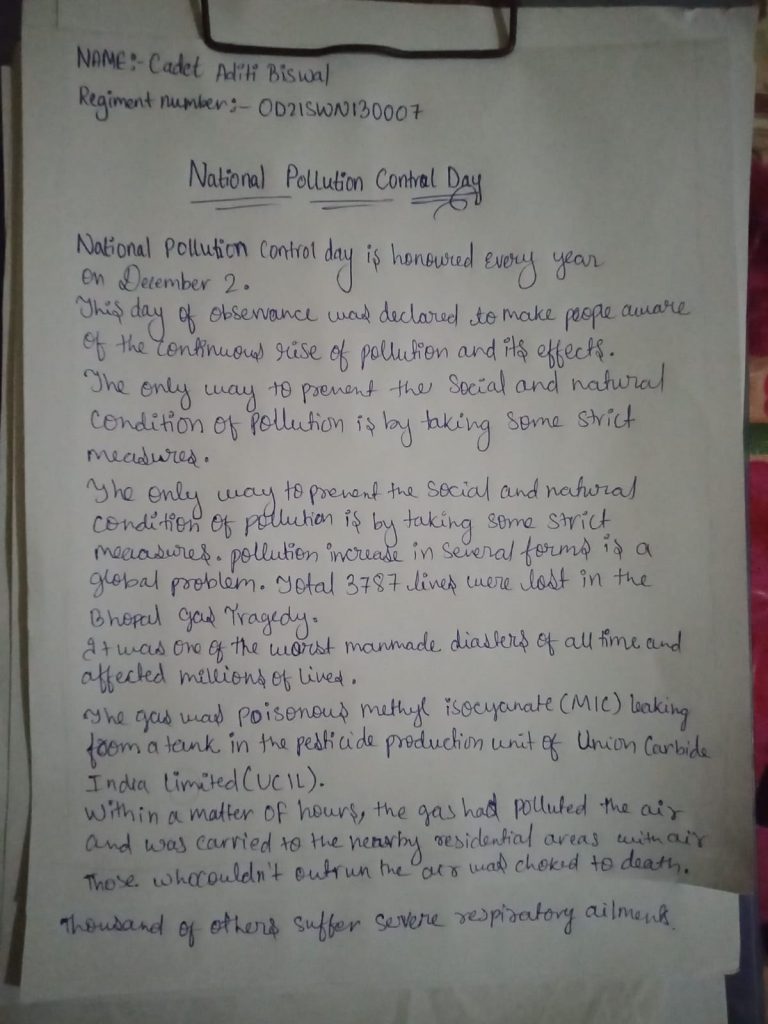 NAME:- Cadet Aditi Biswal
Regiment number:- OD21SWN130007
National Pollution Control Day
National pollution control day is honoured every year
on December 2.
This day of observance was declared to make peope aware
of the continuous rise of pollution and its effects.
The only way to prevent the social and natural
condition of pollution is by taking some strict
measures.
The only way to prevent the social and natural
condition of pollution is by taking some strict
meaasures. pollution increase in several forms is a
global problem. Total 3787 lives were lost in the
Bhopal gas Tragedy.
It was one of the worst manmade diasters of all time and
affected millions of lives.
The gas was poisonous methyl isocyanate (MIC) leaking
from a tank in the pesticide production unit of Union Carbide
India limited (UCIL).
Within a matter of hours, the gas had polluted the air
and was carried to the nearby residential areas with air
Those who couldn't outrun the air was choked to death.
Thousand of others suffer servere respiratory ailments.